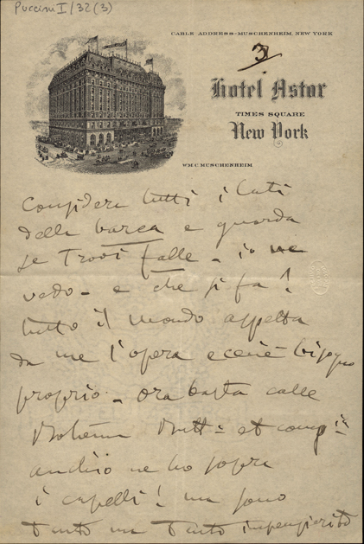 Puccini I/32(3)
CABLE ADDRESS-MUSCHENHEIM, NEW YORK
3
Hotel Astor
TIMES SQUARE
New York
WM.C. MUSCHENHEIM
Considera tutti i lati
della barca e guarda
se trovi falle - io ne
vedo - e che si fa?
tutto il mondo aspetta
da me l'opera e ce n'è bisogno
proprio - ora basta colle
Bohème Butt: et comp:
anch'io ne ho sopra
i capelli! ma sono
tanto ma tanto impensierito